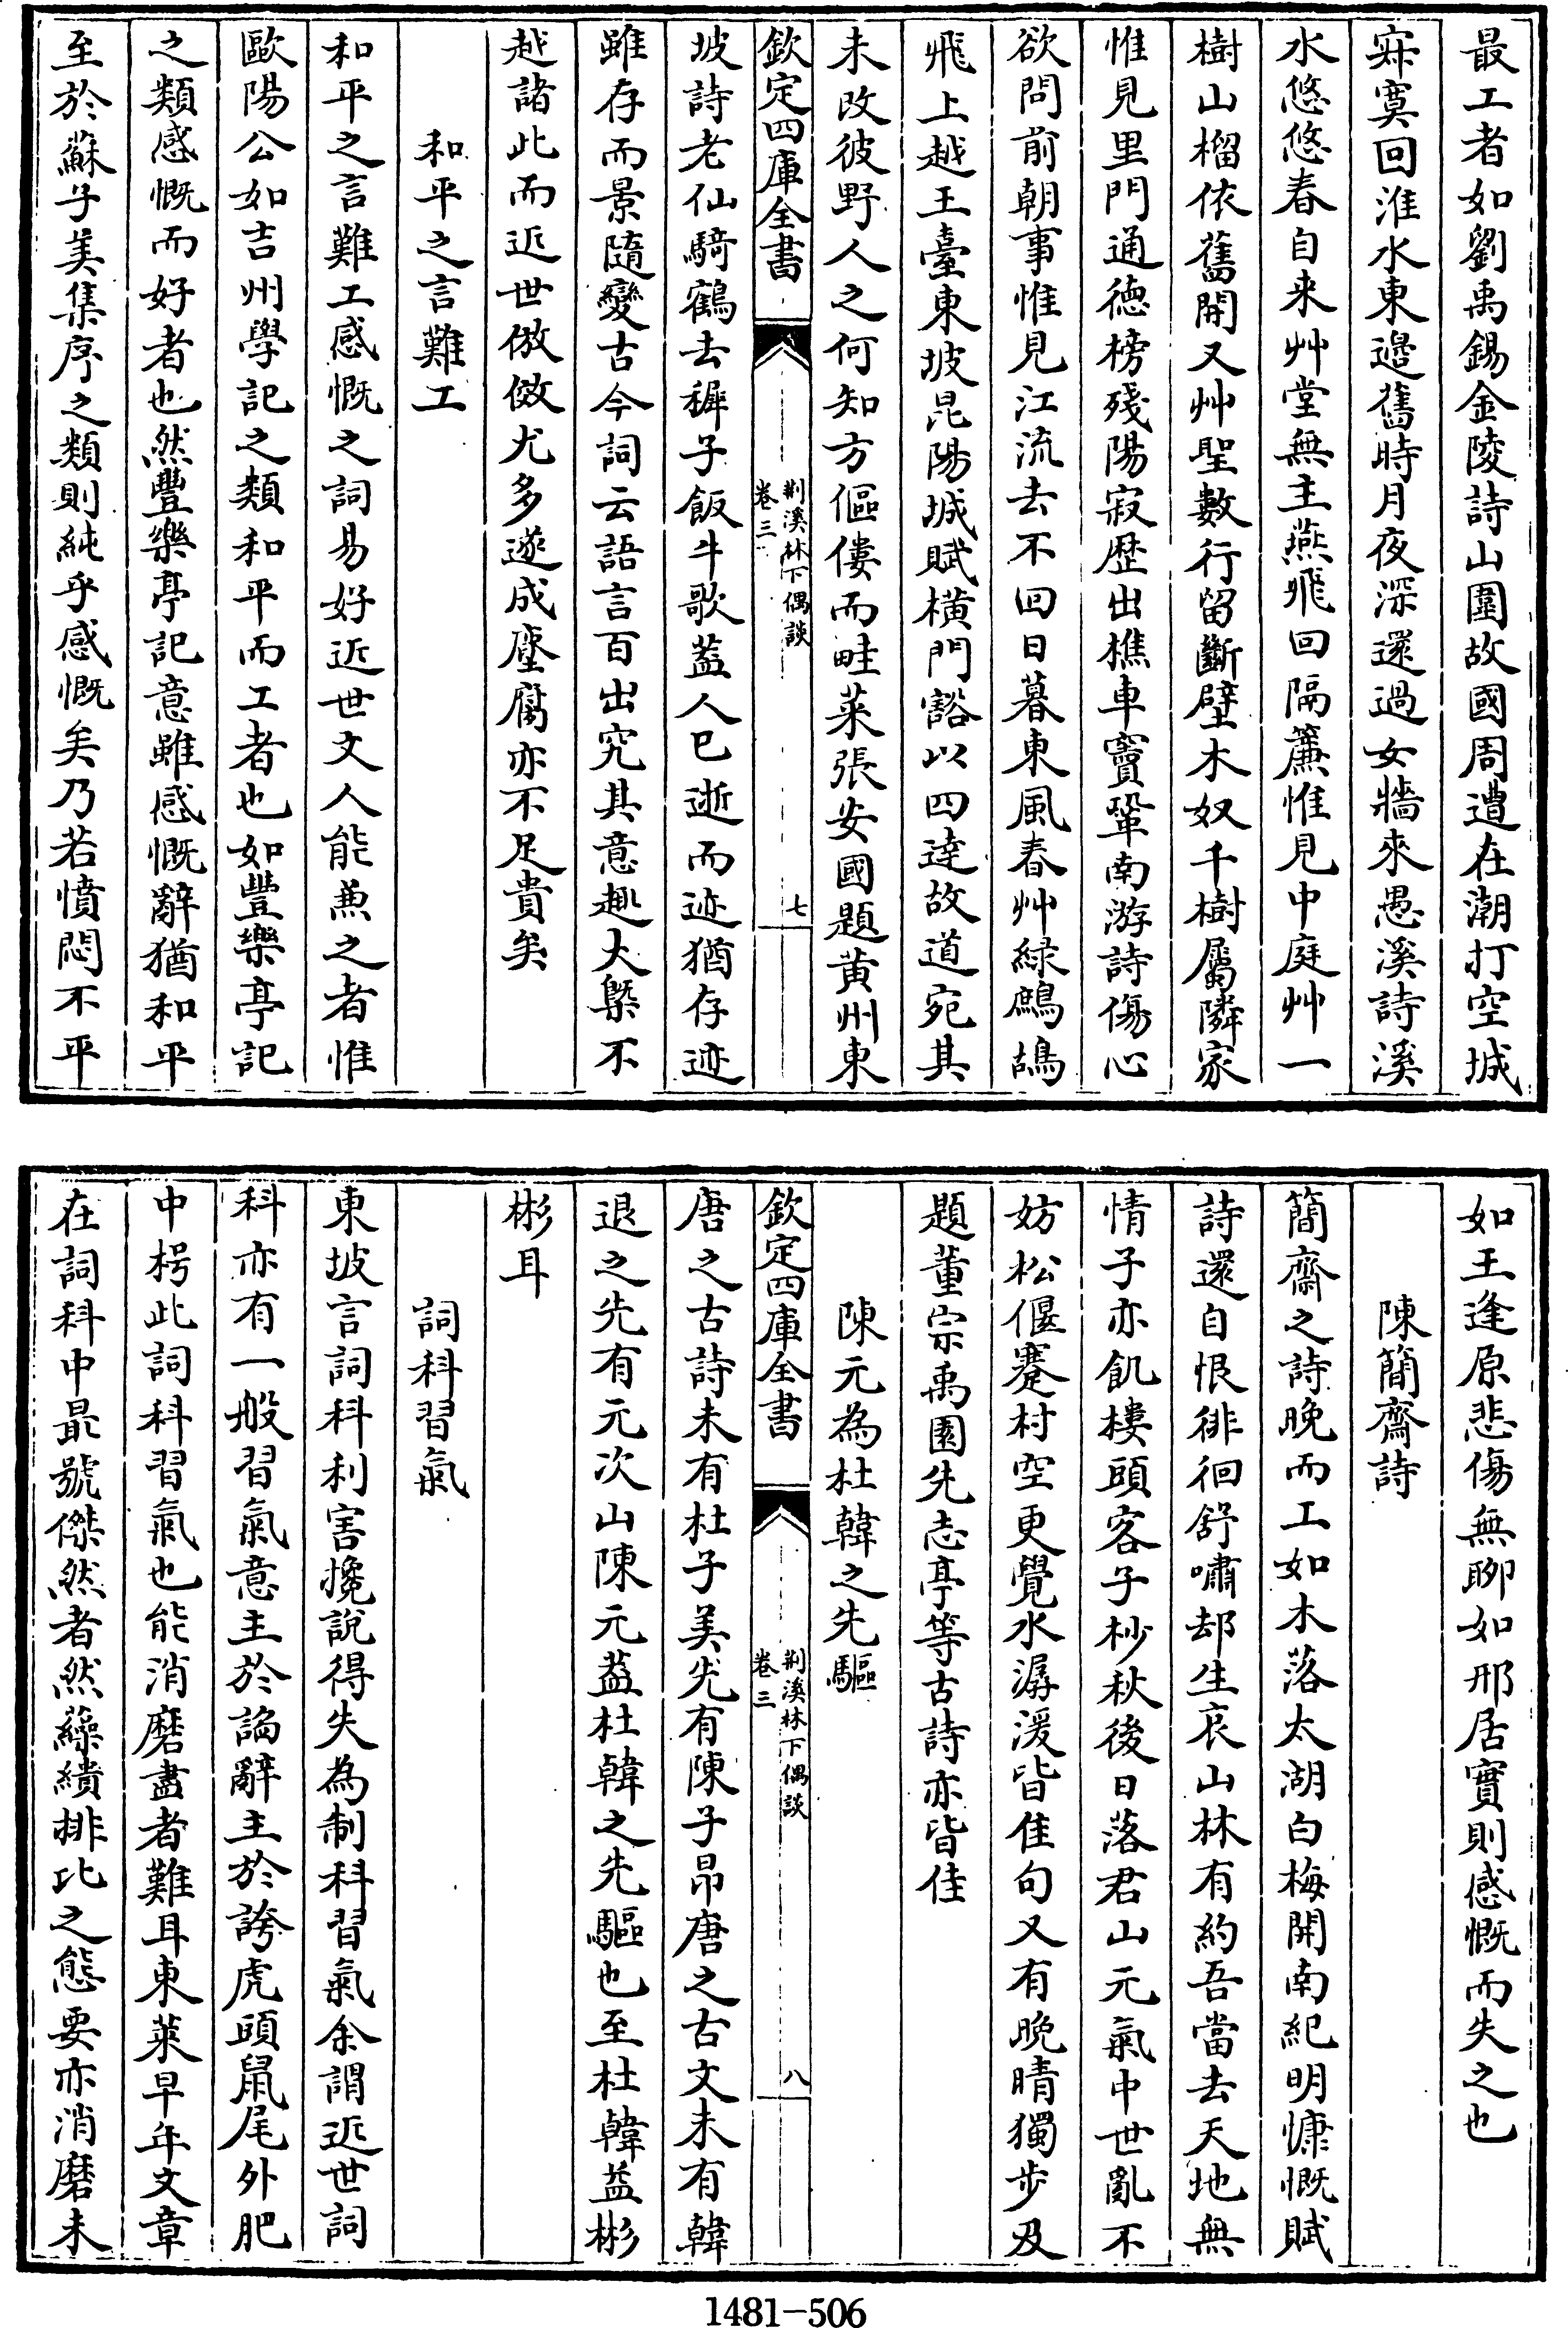 最工者如劉禹錫金陵詩山圍故國周遭在潮打空城
寂寞回淮水東邊舊時月夜深還過女牆來愚溪詩溪
水悠悠春自来艸堂無主燕飛回隔簾惟見中庭艸一
樹山榴依舊開又艸聖數行留斷壁木奴千樹屬隣家
惟見里門通徳榜殘陽寂歴出樵車竇鞏南游詩傷心
欲問前朝事惟見江流去不回日暮東風春艸緑鷓鴣
飛上越王臺東坡昆陽城賦橫門豁以四達故道宛其
未改彼野人之何知方傴僂而畦菜張安國題黄州東
欽定四庫全書
荆溪林下偶談
卷三
七
坡詩老仙騎鶴去穉子飯牛歌葢人已逝而迹猶存迹
雖存而景隨變古今詞云語言百出究其意趣大槩不
越諸此而近世倣傚尤多遂成塵腐亦不足貴矣
和平之言難工
和平之言難工感慨之詞易好近世文人能兼之者惟
歐陽公如吉州學記之類和平而工者也如豐樂亭記
之類感慨而好者也然豐樂亭記意雖感慨辭猶和平
至於蘇子美集序之類則純乎感慨矣乃若憤悶不平
如王逢原悲傷無聊如邢居實則感慨而失之也
陳簡齋詩
簡齋之詩晚而工如木落太湖白梅開南紀明慷慨賦
詩還自恨徘徊舒嘯却生哀山林有約吾當去天地無
情子亦飢樓頭客子杪秋後日落君山元氣中世亂不
妨松偃蹇村空更覺水潺湲皆佳句又有晚晴獨步及
題董宗禹園先志亭等古詩亦皆佳
陳元為杜韓之先驅
欽定四庫全書
荆溪林下偶談
卷三
八
唐之古詩未有杜子美先有陳子昂唐之古文未有韓
退之先有元次山陳元葢杜韓之先驅也至杜韓益彬
彬耳
詞科習氣
東坡言詞科利害攙說得失為制科習氣余謂近世詞
科亦有一般習氣意主於謟辭主於誇虎頭鼠尾外肥
中枵此詞科習氣也能消磨盡者難耳東萊早年文章
在詞科中最號傑然者然藻繢排比之態要亦消磨未
1481-506